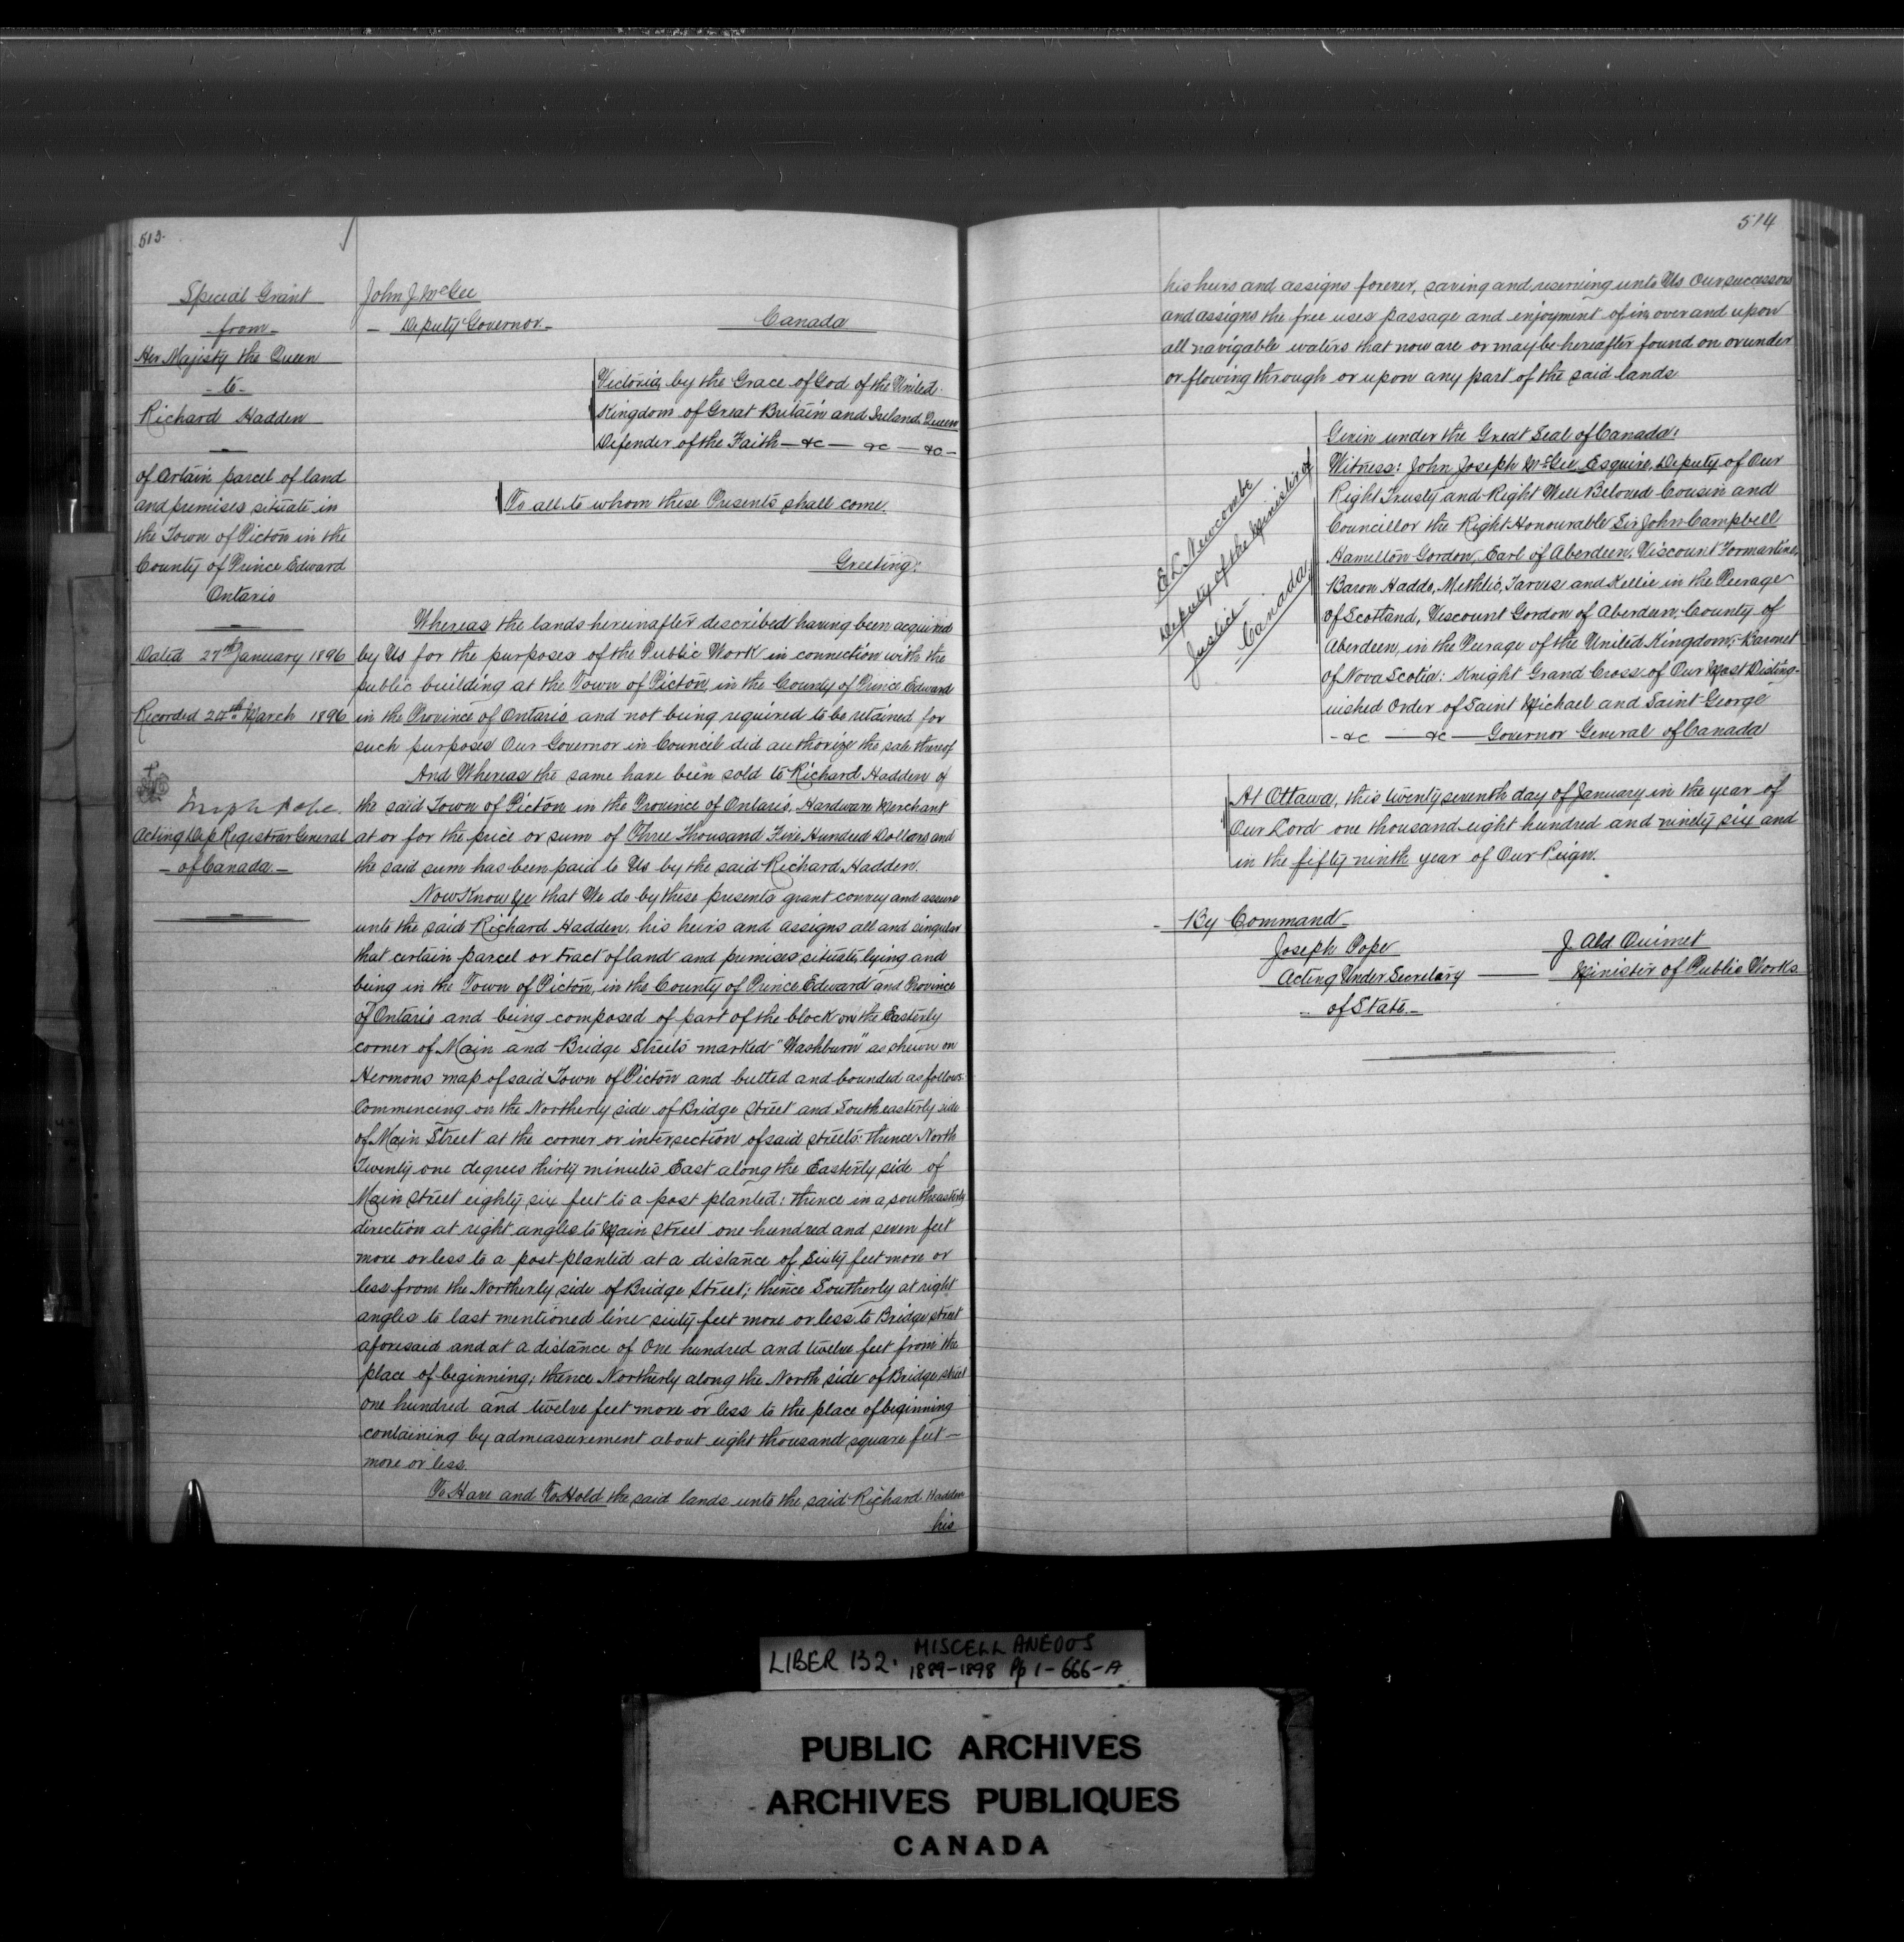 513.
Special Grant
from
Her Majesty the Queen
- to -
Richard Hadden
of Certain parcel of land
and premises situate in
the Town of Picton in the
County of Prince Edward
Ontario
Dated 27th January 1896
Recorded 24th March 1896
Joseph Pope.
Acting Dep Registrar General
- of Canada. -
John J. McGee
- Deputy Governor. -
Canada
Victoria, by the Grace of God of the United
Kingdom of Great Britain and Ireland, Queen
Defender of the Faith — &c — &c — &c —
To all to whom these Presents shall come.
Greeting:
Whereas the lands hereinafter described having been acquired
by Us for the purposes of the Public Work in connection with the
public building at the Town of Picton, in the County of Prince Edward
in the Province of Ontario and not being required to be retained for
such purposes Our Governor in Council did authorize the sale thereof
And Whereas the same have been sold to Richard Hadden of
the said Town of Picton in the Province of Ontario, Hardware Merchant
at or for the price or sum of Three Thousand Five Hundred Dollars and
the said sum has been paid to Us by the said Richard Hadden.
Now Know Ye that We do by these presents grant convey and assure
unto the said Richard Hadden, his heirs and assigns all and singular
that certain parcel or tract of land and premises situate, lying and
being in the Town of Picton, in the County of Prince Edward and Province
of Ontario and being composed of part of the block on the Easterly
corner of Main and Bridge Streets marked "Washburn" as shewn on
Hermons map of said Town of Picton and butted and bounded as follows:
Commencing on the Northerly side of Bridge Street and Southeasterly side
of Main Street at the corner or intersection of said streets: thence North
Twenty one degrees thirty minutes East along the Easterly side of
Main Street eighty six feet to a post planted: thence in a southeasterly
direction at right angles to Main Street one hundred and seven feet
more or less to a post planted at a distance of sixty feet more or
less from the Northerly side of Bridge Street; thence Southerly at right
angles to last mentioned line sixty feet more or less to Bridge Street
aforesaid and at a distance of One hundred and twelve feet from the
place of beginning; thence Northerly along the North side of Bridge Street
one hundred and twelve feet more or less to the place of beginning
containing by admeasurement about eight thousand square feet —
more or less.
To Have and To Hold the said lands unto the said Richard Hadden
his
514
his heirs and assigns forever, saving and reserving unto Us Our successors
and assigns the free uses passage and enjoyment of in, over and upon
all navigable waters that now are or may be hereafter found on or under
or flowing through or upon any part of the said lands
E. L. Newcombe
Deputy of the Minister of
Justice -
Canada
Given under the Great Seal of Canada:
Witness: John Joseph McGee Esquire, Deputy of Our
Right Trusty and Right Well Beloved Cousin and
Councillor the Right Honourable Sir John Campbell
Hamilton Gordon, Earl of Aberdeen, Viscount Formartine,
Baron Haddo, Methlic, Tarves and Kellie in the Peerage
of Scotland, Viscount Gordon of Aberdeen, County of
Aberdeen, in the Peerage of the United Kingdom; Baronet
of Nova Scotia: Knight Grand Cross of Our Most Disting-
uished Order of Saint Michael and Saint George
- &c — &c — Governor General of Canada
At Ottawa, this twenty seventh day of January in the year of
Our Lord one thousand eight hundred and ninety six and
in the fifty ninth year of Our Reign.
- By Command -
Joseph Pope
Acting Under Secretary
- of State. -
J. Ald Ouimet
Minister of Public Works
LIBER 132. MISCELLANEOUS
1889-1898 Pp 1-666-A
PUBLIC ARCHIVES
ARCHIVES PUBLIQUES
CANADA